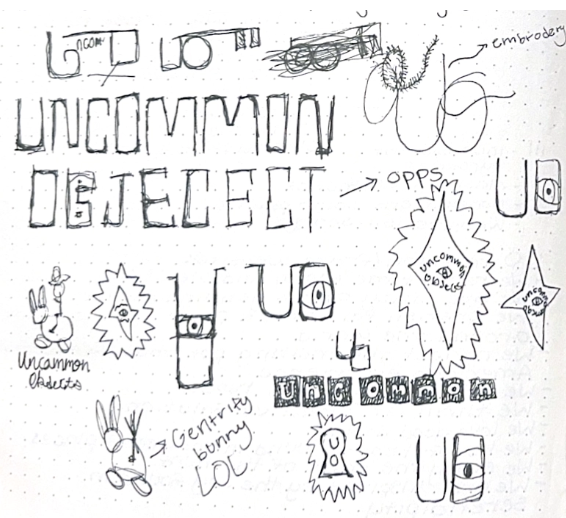 NCOM-
embrodery
UNCOMMON
OBJECECT
OPPS
UO
uncommon
objects
UO
Uncammon
Obdects
UO
uncommon
Gentrity
bunny
LOL
U
UO